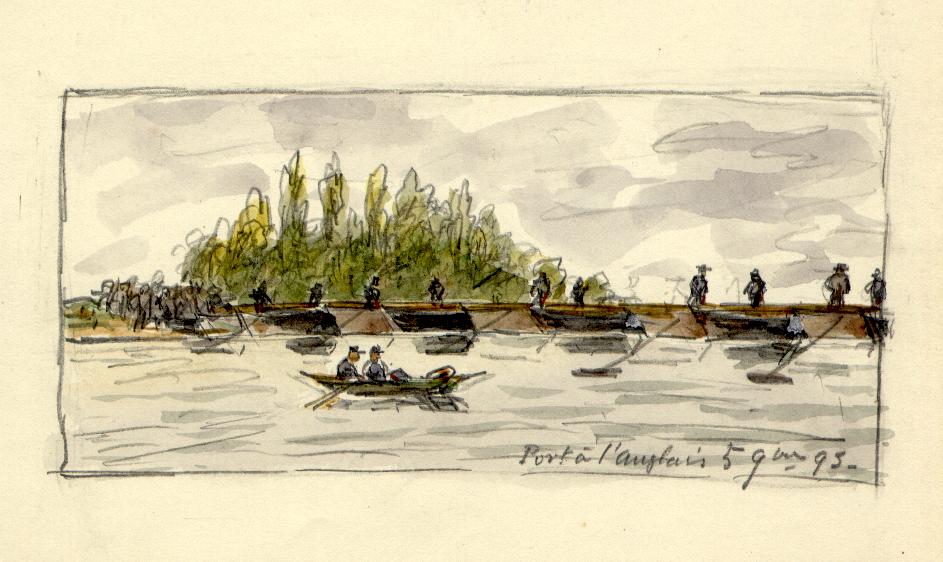 Port à l'anglais 5 9bre 93.